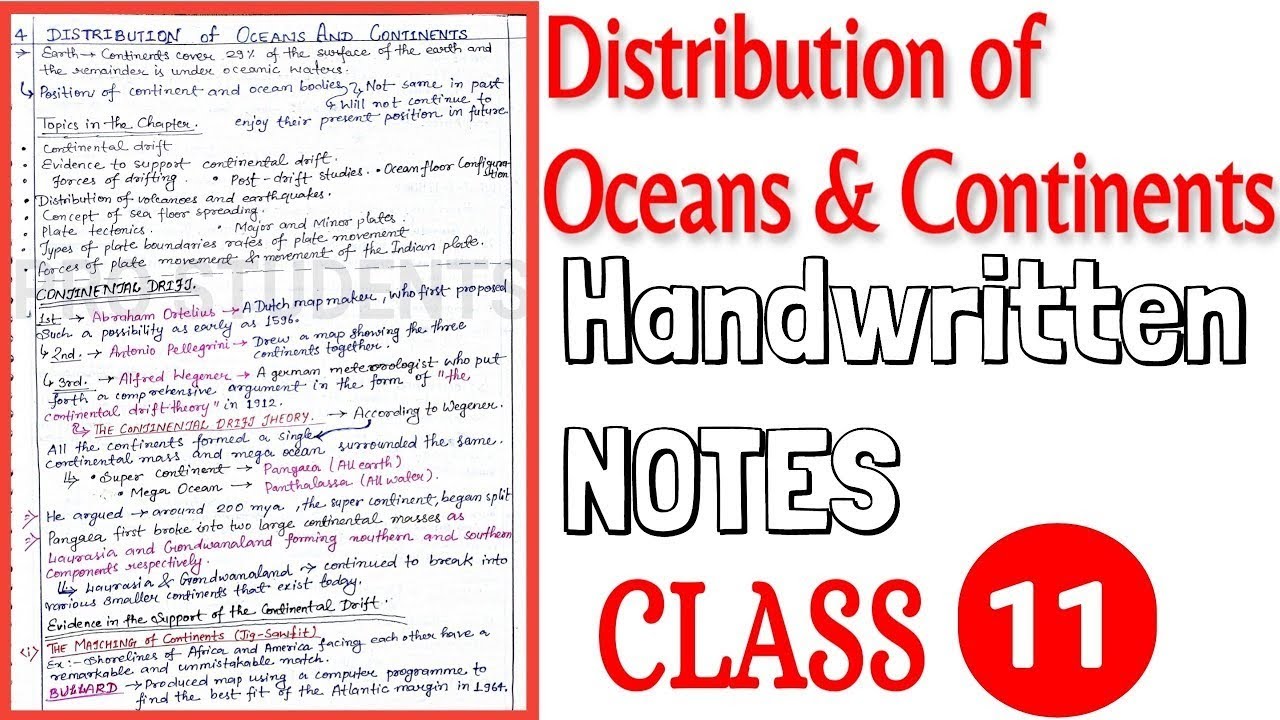 4 DISTRIBUTION of OCEANS AND CONTINENTS
→ Earth → Continents cover 29% of the surface of the earth and
the remainder is under oceanic waters.
↳ Position of continent and ocean bodies ↳ Not same in past
↳ Will not continue to
enjoy their present position in future
Topics in the Chapter.
• Continental drift
• Evidence to support continental drift.
• forces of drifting. • Post-drift studies. • Ocean floor Configuration
• Distribution of volcanoes and earthquakes.
• Concept of sea floor spreading.
• Plate tectonics. • Major and Minor plates.
• Types of plate boundaries rates of plate movement
• forces of plate movement & movement of the Indian plate.
PRO STUDENTS
CONTINENTAL DRIFT.
↳ 1st → Abraham Ortelius → A Dutch map maker, who first proposed
Such a possibility as early as 1596.
↳ 2nd. → Antonio Pellegrini → Drew a map showing the three
continents together.
↳ 3rd. → Alfred Wegener → A german meteorologist who put
forth a comprehensive argument in the form of "the
continental drift theory" in 1912.
↳ THE CONTINENTAL DRIFT THEORY. → According to Wegener.
All the continents formed a single
continental mass and mega ocean surrounded the same.
↳ • Super continent → Pangaea (All earth)
• Mega Ocean → Panthalassa (All water).
⇒ He argued → around 200 mya, the super continent, began split
⇒ Pangaea first broke into two large continental masses as
Laurasia and Gondwanaland forming nouthern and southern
components respectively.
↳ Laurasia & Gondwanaland → continued to break into
various smaller continents that exist today.
Evidence in the Support of the Continental Drift.
(i) THE MATCHING of Continents (Jig-Sawfit)
Ex:- Shorelines of Africa and America facing each other have a
remarkable and unmistakable match.
BULLARD → Produced map using a computer programme to
find the best fit of the Atlantic margin in 1964.
Distribution of
Oceans & Continents
Handwritten
NOTES
CLASS 11